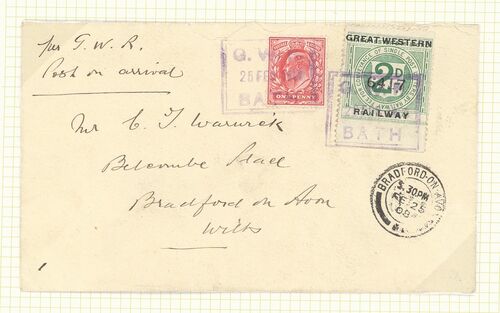 per G. W. R.
Post on arrival
G. W. R.
25 FEB
BATH
ONE PENNY
GREAT WESTERN
2D
6417
RAILWAY
BATH
Mr C. J. Warwick
Belcombe Place
Bradford on Avon
Wilts
BRADFORD-ON-AVON
3.30PM
FE 25
08